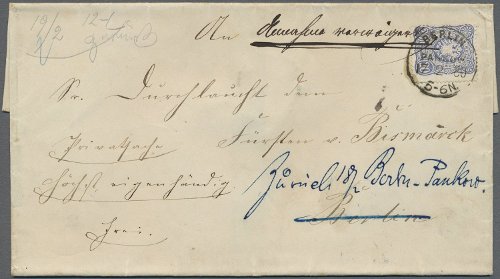 19/2
An Annahme verweigert
BERLIN
PANKOW
5-6N.
Sr. Durchlaucht dem
Fürsten v. Bismarck
Privatsache
Höchst eigenhändig.
frei.
Zurück 18/2 Berlin-Pankow.
Berlin